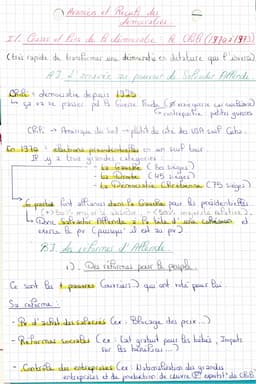 Avancées et Reculs des
démocraties.
I). Crises et fin de la démocratie au Chili (1970 à 1973)
(très rapide de transformer une démocratie en dictature que l'inverse)
A). L'arrivée au pouvoir de Salvador Allende
Chili : démocratie depuis 1925
↳ ça va se passer pdt la Guerre Froide
petites guerres
Chili → Amérique du Sud → plutôt du côté des USA sauf Cuba.
En 1970 : élections présidentielles en un seul tour.
Il y a trois grandes catégories :
- La Gauche (80 sièges)
- La Droite (45 sièges)
- La Démocratie Chrétienne (75 sièges)
6 partis font alliances dans la Gauche pour les présidentielles
↳ Donc Salvador Allende à la tête d'une cohésion et
exerce le pvr (puisqu'il est au pvr)
B). Les réformes d'Allende.
1). Des réformes pour le peuple.
Ce sont les + pauvres (ouvriers) qui ont voté pour lui
Sa réforme :
- Pvr d'achat des salariés (ex : Blocage des prix...)
- Réformes sociales (ex : Lait gratuit pour les bébés, Impôts
sur les bénéfices...)
- Contrôle des entreprises (ex : Nationalisation des grandes
entreprises et de production de cuivre